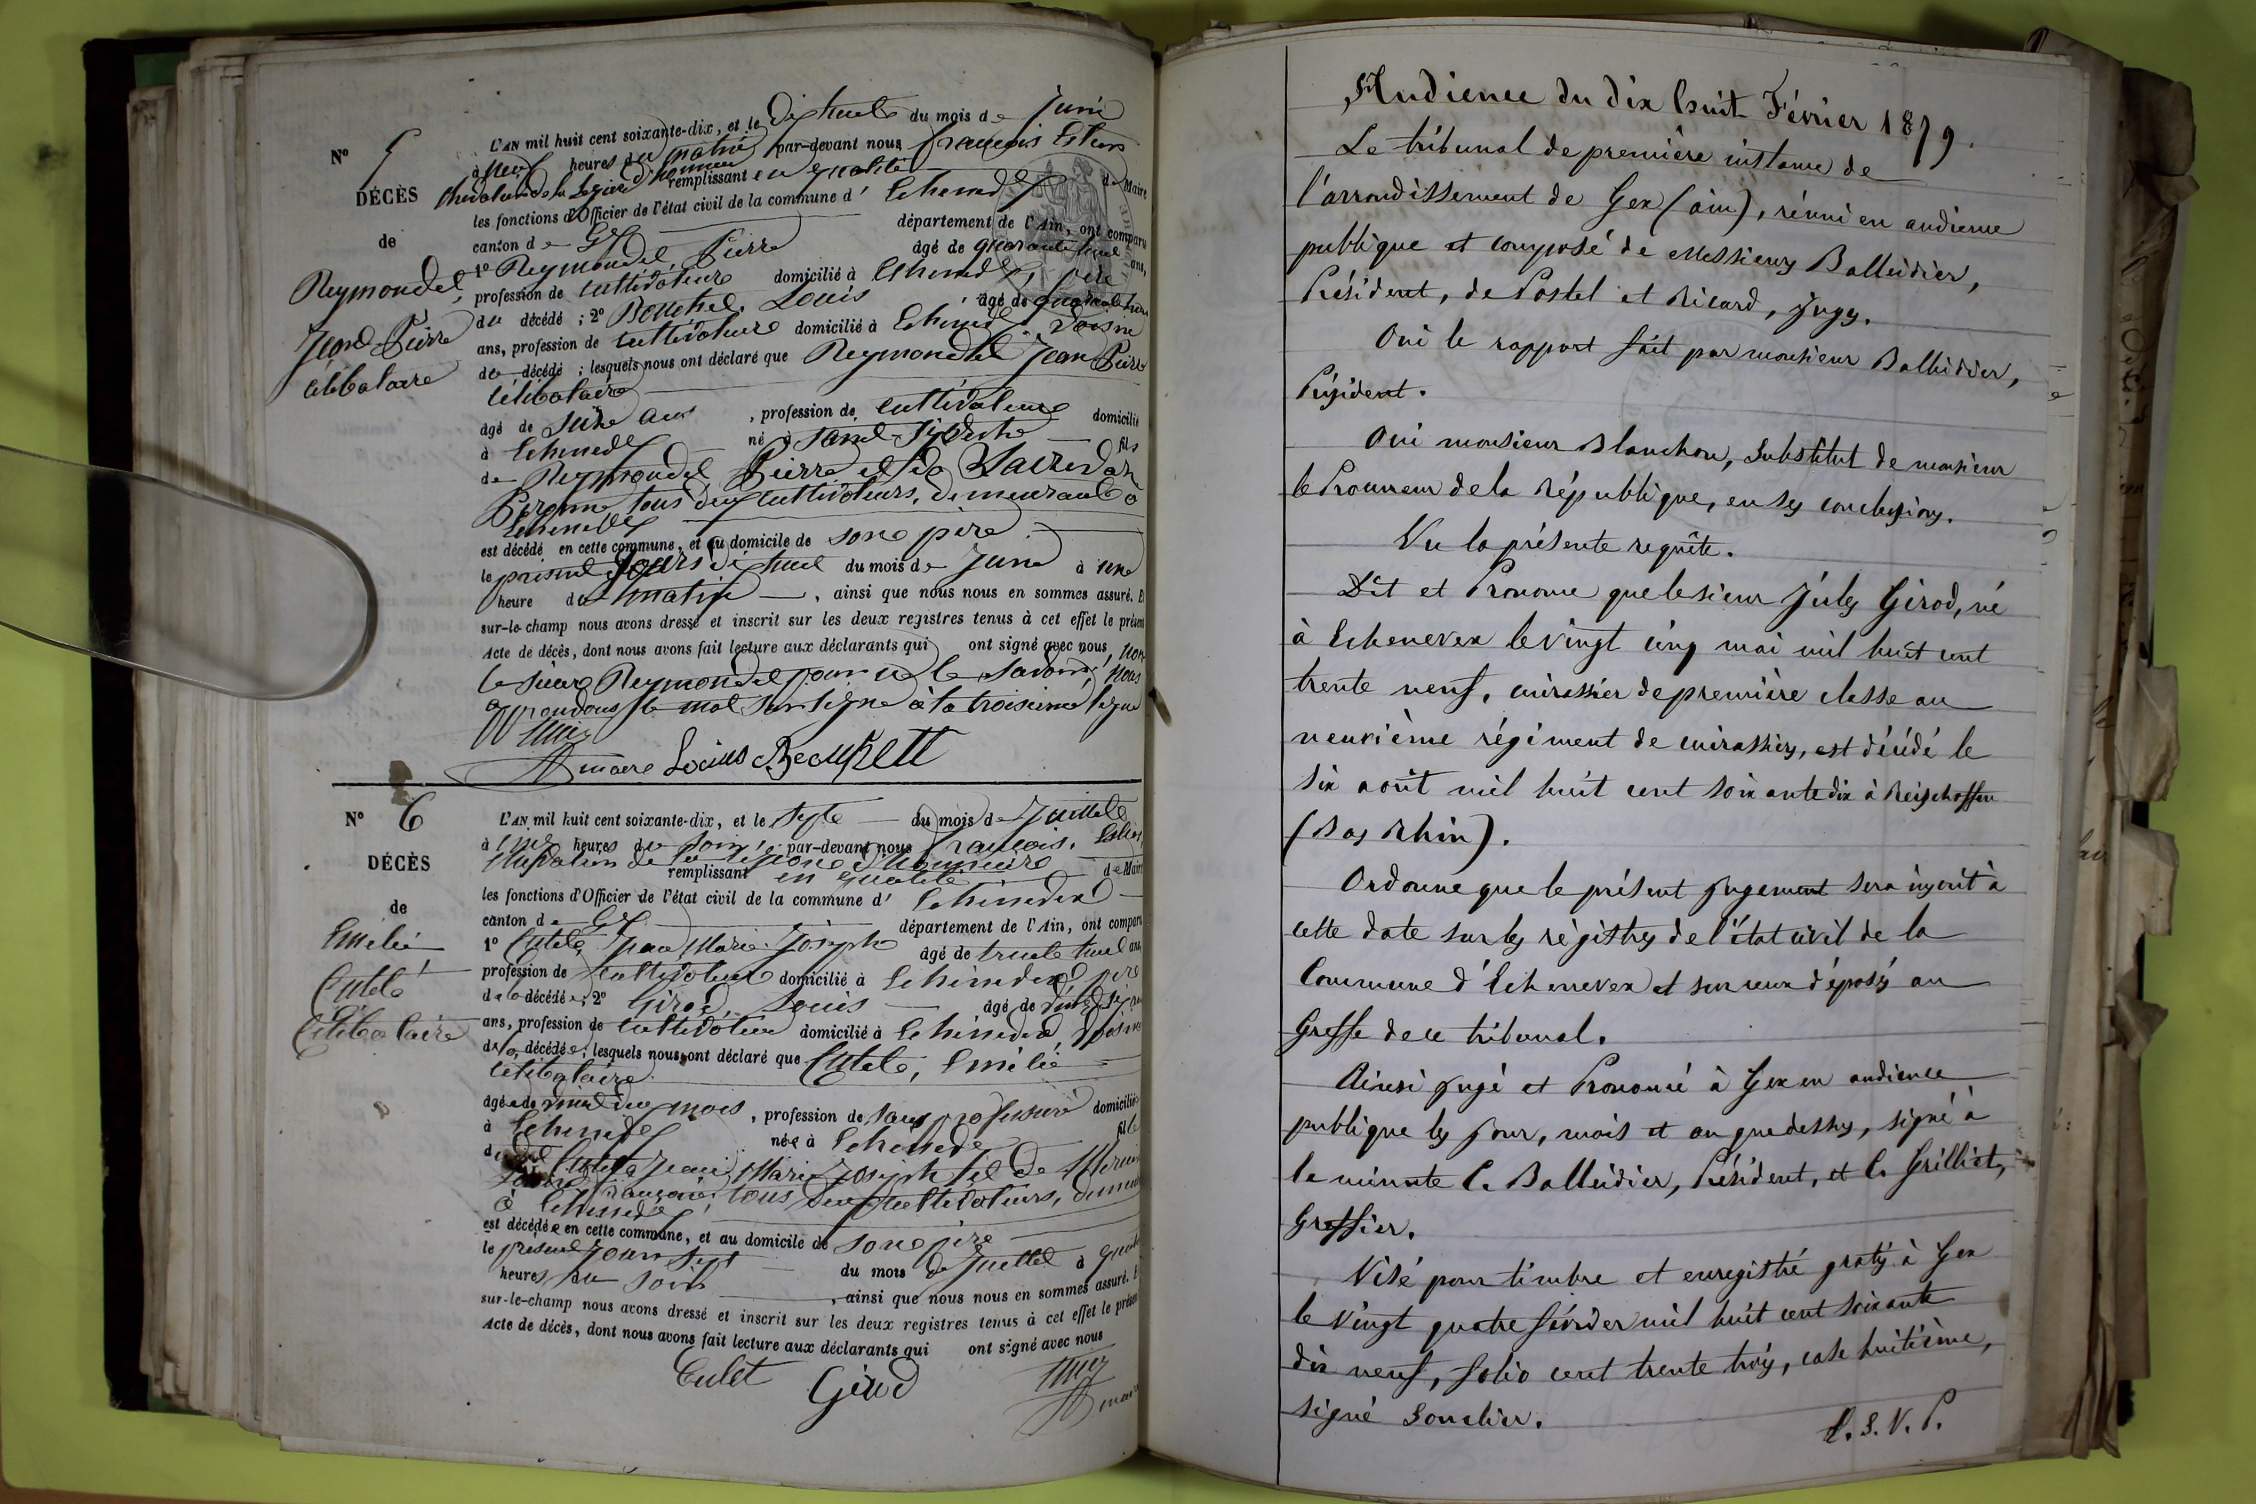 N° 5
DÉCÈS
de
Reymondet,
Jean-Pierre
célibataire
L'AN mil huit cent soixante-dix, et le dix huit du mois de Juin
à neuf heures du matin par-devant nous François
chevalier de la Légion d'honneur remplissant en qualité de Maire
les fonctions d'Officier de l'état civil de la commune d' Echenevex
canton de Gex département de l'Ain, ont comparu
1° Reymondet, Pierre âgé de quarante huit ans,
profession de cultivateur domicilié à Echenevex, père
du décédé ; 2° Louis âgé de
ans, profession de cultivateur domicilié à Echenevex, voisin
du décédé ; lesquels nous ont déclaré que Reymondet Jean Pierre
célibataire
âgé de ans, profession de cultivateur domicilié
à Echenevex né à fils
de Reymondet Pierre et de
tous deux cultivateurs, demeurant à
Echenevex
est décédé en cette commune, et au domicile de son père
le présent jour dix huit du mois de Juin à une
heure du matin, ainsi que nous nous en sommes assuré. Et
sur-le-champ nous avons dressé et inscrit sur les deux registres tenus à cet effet le présent
Acte de décès, dont nous avons fait lecture aux déclarants qui ont signé avec nous, non
le sieur Reymondet pour ne le savoir, nous
approuvons le mot surligné à la troisième ligne
maire Louis
N° 6
DÉCÈS
de
Emélie
Célibataire
L'AN mil huit cent soixante-dix, et le sept du mois de Juillet
à heures du soir, par-devant nous François
chevalier de la Légion d'honneur
remplissant en qualité de Maire
les fonctions d'Officier de l'état civil de la commune d' Echenevex
canton de Gex département de l'Ain, ont comparu
1° Jean Marie Joseph âgé de trente huit ans,
profession de cultivateur domicilié à Echenevex, père
de la décédée ; 2° Girod, Louis âgé de
ans, profession de cultivateur domicilié à Echenevex, voisin
de la décédée ; lesquels nous ont déclaré que Emélie
célibataire
âgée de mois, profession de sans profession domiciliée
à Echenevex née à Echenevex fille
de Jean Marie Joseph et de
tous deux cultivateurs,
à Echenevex
est décédée en cette commune, et au domicile de son père
le présent jour sept du mois de Juillet à
heures du soir, ainsi que nous nous en sommes assuré. Et
sur-le-champ nous avons dressé et inscrit sur les deux registres tenus à cet effet le présent
Acte de décès, dont nous avons fait lecture aux déclarants qui ont signé avec nous
Girod
Audience du dix huit Février 1879.
Le tribunal de première instance de
l'arrondissement de Gex (ain), réuni en audience
publique et composé de Messieurs Balleidier,
Président, de Postel et Ricard, juges.
Oui le rapport fait par monsieur Balleidier,
Président.
Oui monsieur Blanchon, Substitut de monsieur
le Procureur de la République, en ses conclusions.
Vu la présente requête.
Dit et Prononce que le sieur Jules Girod, né
à Echenevex le vingt cinq mai mil huit cent
trente neuf, cuirassier de première classe au
neuvième régiment de cuirassiers, est décédé le
six août mil huit cent soixante dix à Reischoffen
(Bas Rhin).
Ordonne que le présent jugement sera inscrit à
cette date sur les régistres de l'état civil de la
Commune d'Echenevex et sur ceux déposés au
Greffe de ce tribunal.
Ainsi jugé et Prononcé à Gex en audience
publique les jour, mois et an que dessus, signé à
la minute C. Balleidier, Président, et C. Grilliet,
Greffier.
Visé pour timbre et enregistré gratis à Gex
le vingt quatre février mil huit cent soixante
dix neuf, folio cent trente trois, case huitième,
signé Sonclier.
T. S. V. P.